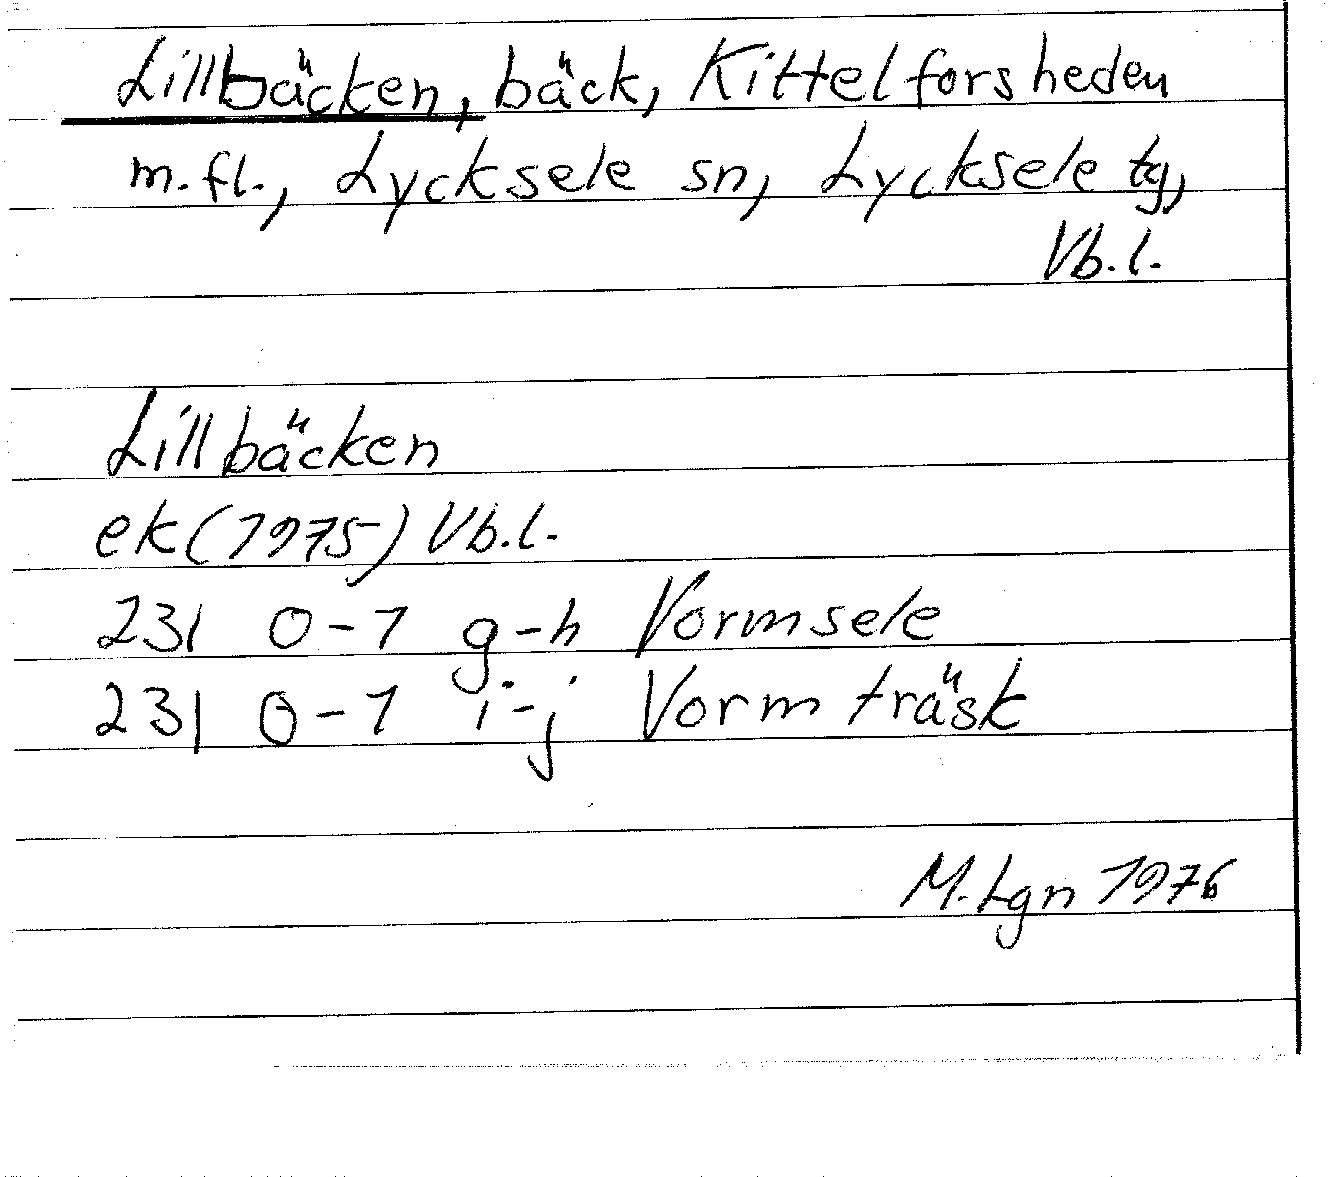 Lillbäcken, bäck, Kittelforsheden
m.fl., Lycksele sn, Lycksele tg,
Vb.l.
Lillbäcken
ek(1975) Vb.l.
23I 0-1 g-h Vormsele
23I 0-1 i-j Vormträsk
M.Lgn 1976